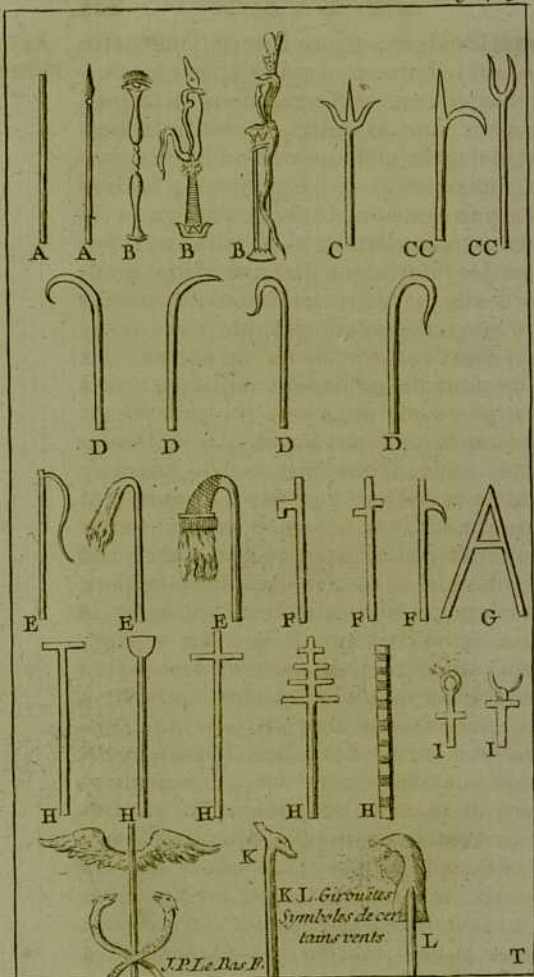 A A B B B C CC CC
D D D D.
E E E F F F G
H H H H H I I
K
K L. Girouëttes
Symboles de cer
tains vents
L
J.P. Le Bas F.
T